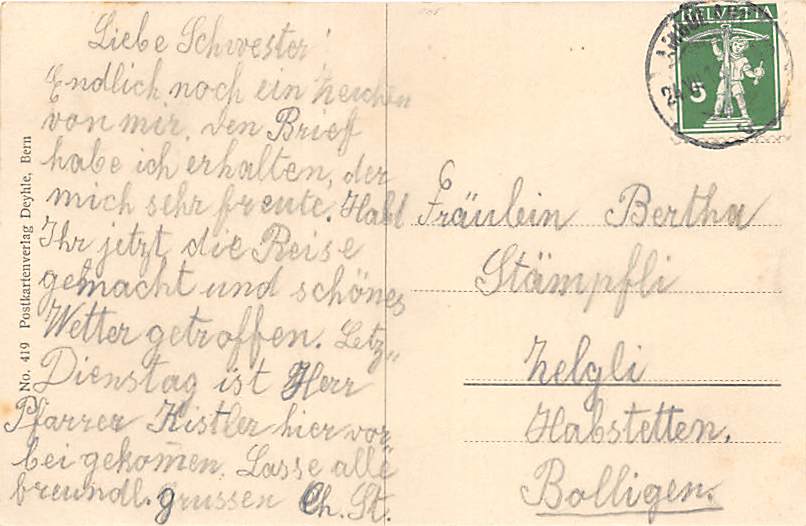 Liebe Schwester!
Endlich noch ein Zeichen
von mir. Den Brief
habe ich erhalten, der
mich sehr freute. Habt
Ihr jetzt die Reise
gemacht und schönes
Wetter getroffen. Letz"
Dienstag ist Herr
Pfarrer Kistler hier vor"
bei gekom̅en. Lasse alle
freundl. grüssen Ch. St.
HELVETIA
5
Fräulein Bertha
Stämpfli
Zelgli
Habstetten.
Bolligen.
No. 419 Postkartenverlag Deyhle, Bern